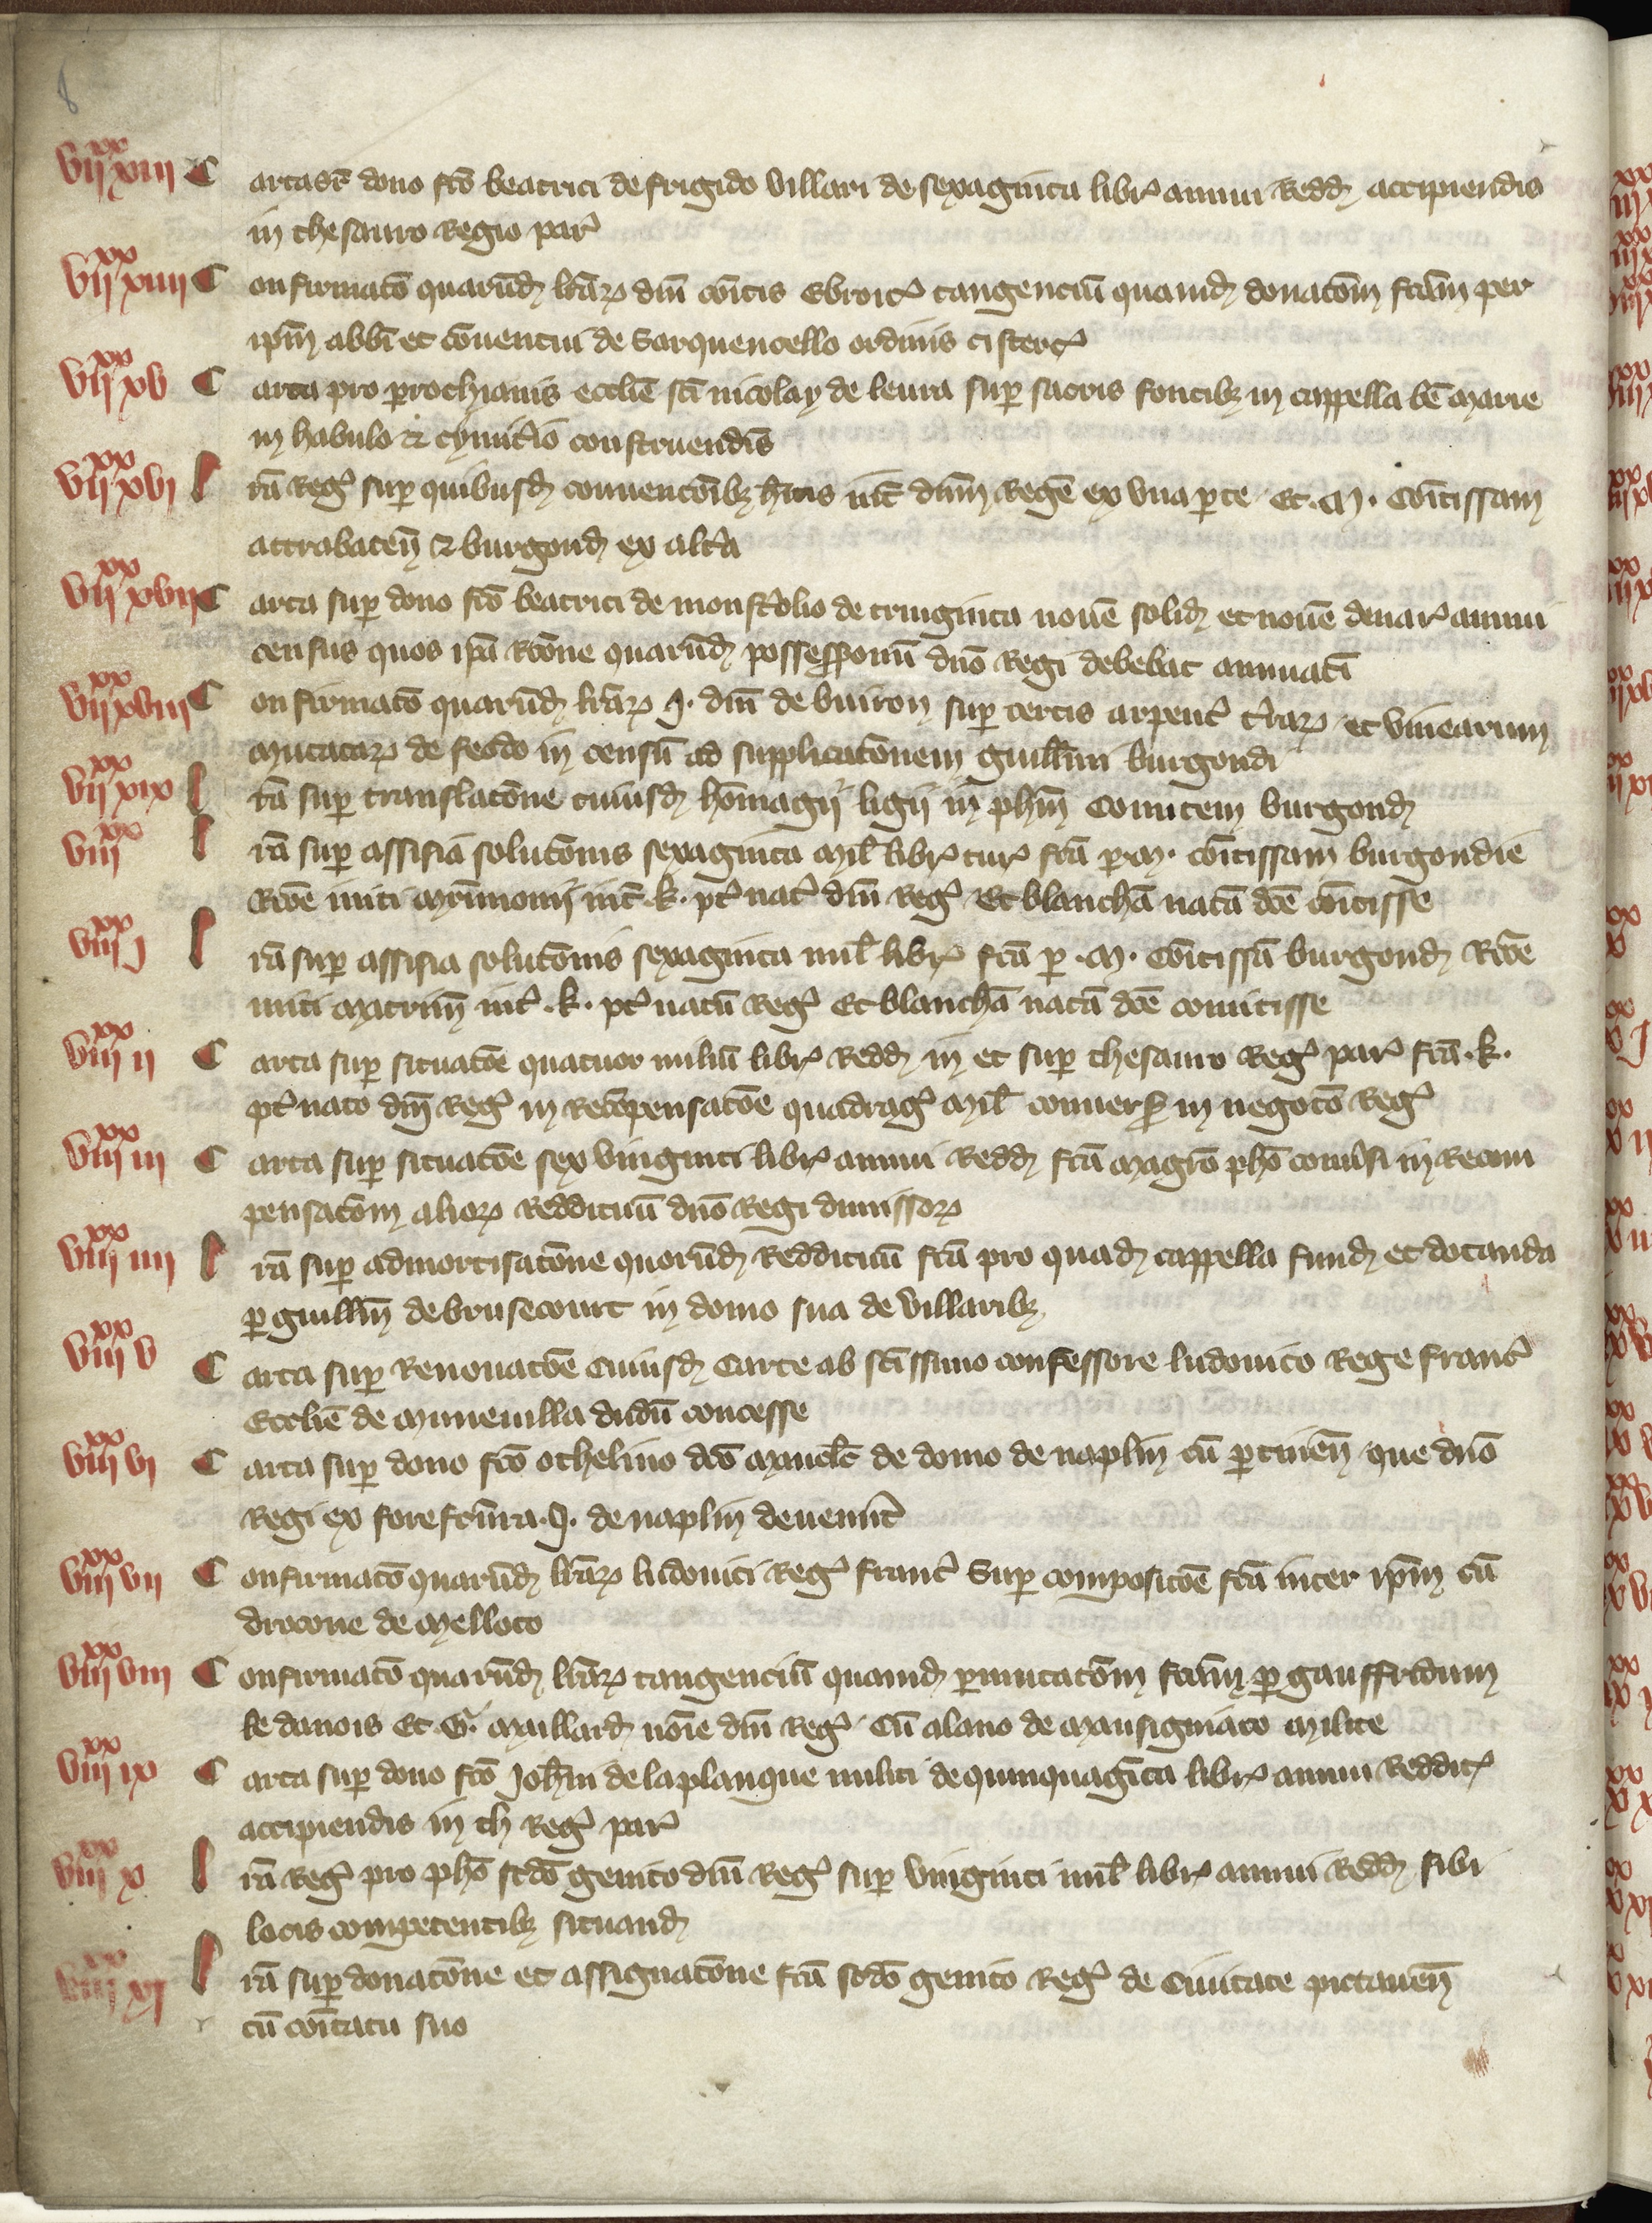 8
vii xx xiii Carta sr̄ dono fc̄o beatrici de frigido villari de sexaginta libr̉ annui Redd̉ accipiendis
in thesauro Regio par̉
vii xx xiiii Confirmac̄o quarūd̉ lr̄aꝝ dn̄i cōitis Ebroic̉ tangenciū quamd̉ donac̄om̄ fc̄am per
ip̄m abb̄i et cōuentui de Sarquencello ordinis cisterc̉
vii xx xv Carta pro ꝑrochianis ecclīe sc̄i nicolay de leura suꝑ sacris fontibꝫ in cappella bē Marie
in habulo ⁊ cymit̉io construendis
vii xx xvi lr̄a Reg̉ suꝑ quibusd̉ conuenc̄oībꝫ h̄itis int̉ dn̄m Regē ex vna ꝑte Et .M. Cōitissam
attrabaten̄ ⁊ burgond̉ ex alt̉a
vii xx xvii Carta suꝑ dono fc̄o beatrici de monst̉olio de tringinta nouē solid̉ et nouē denar̉ annui
census quos ip̄a Rōne quarūd̉ possessionū dn̄o Regi debebat annuatī
vii xx xviii Confirmac̄o quarūd̉ lr̄aꝝ J. dn̄i de buiron suꝑ certis arpent̉ t̉raꝝ et vinearum
Mutatoꝝ de feodo in censū ad supplicac̄onem guill̄mi burgondi
vii xx xix lr̄a suꝑ translac̄one cuiusd̉ hōmagij ligij in ph̄m Comitem burgond̉
viii xx lr̄a suꝑ assisia soluc̄onis sexaginta Mil̄ libr̉ tur̉ fc̄a ꝑ .M. cōitissam burgondie
Rōe initi Mr̄imonij int̉ .k. pt̉ nat̉ dn̄i Reg̉ Et blanchā natā dc̄e cōitisse
viii xx j lr̄a suꝑ assisia soluc̄onis sexaginta mil̄ libr̉ fc̄a ꝑ .M. Cōitissā burgond̉ Rōe
initi Matrim̄ int̉ .k. pt̉ natū Reg̉ Et blanchā natā dc̄e comitisse
viii xx ii Carta suꝑ situac̄oe quatuor miliū libr̉ Redd̉ in et suꝑ thesauro Reg̉ par̉ fc̄a .k.
pt̉ nato dn̄i Reg̉ in Recōpensac̄oe quadrag̉ Mil̄ conuers̉ in negoc̄o Reg̉
viii xx iii Carta suꝑ situac̄oe sex vinginti libr̉ annui Redd̉ fc̄a Magr̄o ph̄o conu̓si in Recom
pensac̄om̄ alioꝝ Reddituū dn̄o Regi dimissoꝝ
viii xx iiii lr̄a suꝑ admortisac̄one quorūd̉ Reddituū fc̄a pro quad̉ cappella fund̉ et dotanda
ꝑ guill̄m̄ de brusecourt in domo sua de villaribꝫ
viii xx v Carta suꝑ Renouac̄oe Cuiusd̉ Carte ab sc̄issimo confessore ludouico Rege franc̉
Ecclīe de Mineuilla dudū concesse
viii xx vi Carta suꝑ dono fc̄o othelino dc̄o Maucl̄c de domo de naplin cū ꝑtinen̄ que dn̄o
Regi ex forefc̄ura .J. de naplin deuenit̄
viii xx vii Confirmac̄o quarūd̉ lr̄aꝝ ludouici Reg̉ franc̉ Suꝑ composic̄oe fc̄a inter ip̄m cū
drocone de Melloto
viii xx viii Confirmac̄o quarūd̉ lr̄aꝝ tangenciū quamd̉ ꝑmutac̄om̄ fc̄am̄ ꝑ gauffridum
le danois Et G̉. Maillard̉ noīe dn̄i Reg̉ Cū alano de Mausigniaco Milite
viii xx ix Carta suꝑ dono fc̄o Joh̄ni de la planque militi de quinquagīta libr̉ annui Reddit̉
accipiendis in th Reg̉ par̉
viii xx x lr̄a Reg̉ pro ph̄o sc̄do genito dn̄i Reg̉ suꝑ vinginti mil̄ libr̉ annui Redd̉ sibi
locis competentibꝫ situand̉
viii xx xi lr̄a suꝑ donac̄one et assignac̄one fc̄a sc̄do genito Reg̉ de Ciuitate pictauen̄
cū cōitatu suo